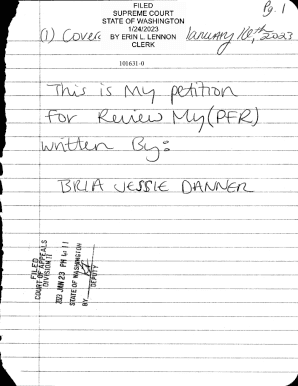 FILED
SUPREME COURT
STATE OF WASHINGTON
1/24/2023
BY ERIN L. LENNON
CLERK
Pg. 1
(1) Cover: January 16th, 2023
101631-0
This is My petition
For Review My (PFR)
written By:
BRIA JESSIE DANNER
FILED
COURT OF APPEALS
DIVISION II
2023 JAN 23 PM 4:11
STATE OF WASHINGTON
BY
DEPUTY